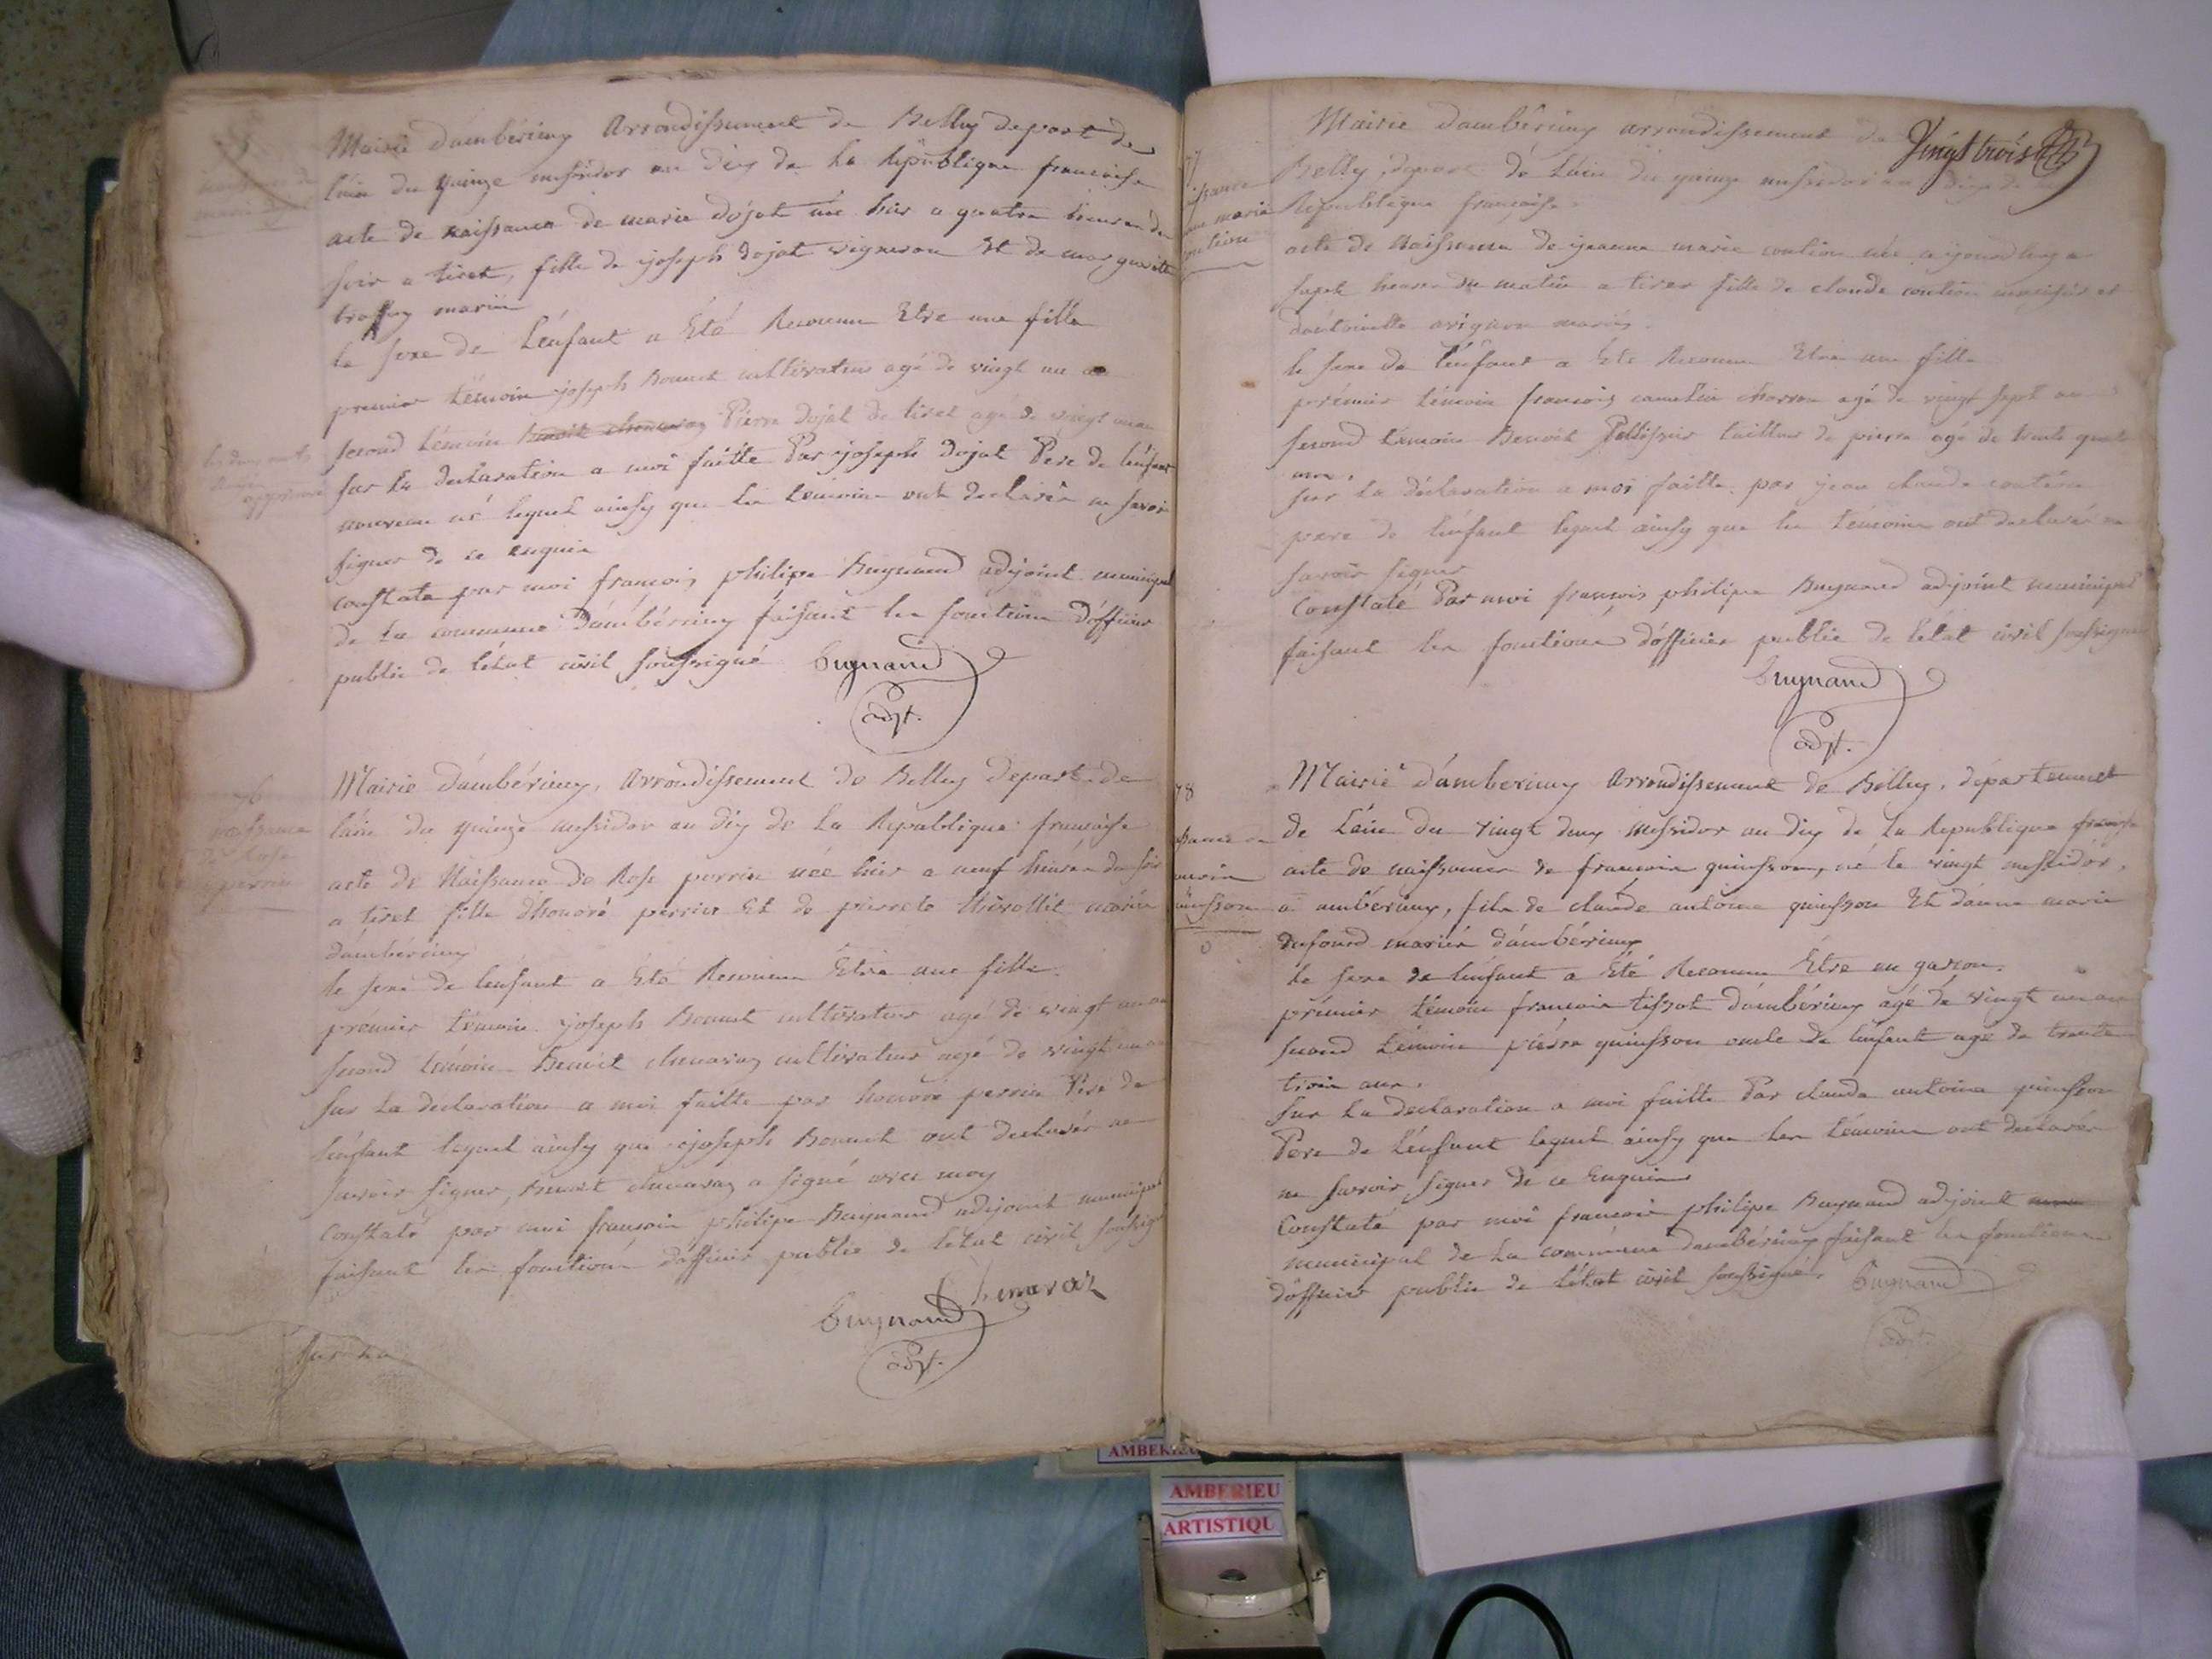 Mairie d'ambérieux Arrondissement de Belley depart de
lain du quinze messidor an dix de la République francoise
acte de naissance de marie dojat née hier a quatre heures du
soir a tiret, fille de joseph dojat vigneron Et de marguerite
mariés
le sexe de L'enfant a Été Reconnu Etre une fille
premier témoin joseph Bonnet cultivateur agé de vingt un an
second témoin Benoit chenavaz Pierre dojat de tiret agé de vingt un an
les deux mots
rayés
approuvé
sur la declaration a moi faitte Par joseph dojat Pere de lenfant
nouveau né lequel ainsy que les temoins ont declarés ne savoir
signer de ce enquis
constaté par moi françois philipe Buynand adjoint municipal
de la commune d'ambérieux faisant les fonctions d'officier
public de l'état civil soussigné Buynand
adjt.
76
naissance
de Rose
perrin
Mairie d'ambérieux, Arrondissement de Belley depart de
lain du quinze messidor an dix de la République francoise
acte de Naissance de Rose perrin née hier a neuf heures du soir
a tiret fille dhonoré perrin Et de pierrete mariés
d'ambérieux
le sexe de lenfant a Été Reconnu Être une fille.
prémier témoin joseph Bonnet cultivateur agé de vingt un an
second témoin Benoit chenavaz cultivateur agé de vingt un an
sur la declaration a moi faitte par honoré perrin Père de
lenfant lequel ainsy que joseph Bonnet ont declarés ne
savoir signer, Benoit chenavaz a signé avec moy
Constaté par moi francois philipe Buynand adjoint municipal
faisant les fonctions d'officier public de létat civil soussigé
Chenavaz
Buynand
adjt.
Vingt trois
77
naissance
marie
Mairie d'ambérieux arrondissement de
Belley, depart de Lain du quinze messidor an dix de la
République françoise.
acte de Naissance de jeanne marie contion née aujourdhuy a
sept heures du matin a tiret fille de claude contion et
dantoinette avignon mariés.
le sexe de l'énfant a Été Reconnu Etre une fille
prémier témoin francois charron agé de vingt sept ans
second témoin Benoit Pellissier tailleur de pierre agé de trente quatre
ans.
sur la déclaration a moi faitte par jean claude contion
pere de lenfant lequel ainsy que les témoins ont declarés ne
savoir signer
Constaté Par moi françois philipe Buynand adjoint municipal
faisant les fonctions d'officier public de l'état civil soussigné
Buynand
adjt.
78
quinsson
Mairie d'amberieux Arrondissement de Belley, département
de Lain du vingt deux Messidor an dix de la République francoise
acte de naissance de francois quinsson, né le vingt messidor,
a ambérieux, fils de claude antoine quinsson Et danne marie
dufourd mariés d'ambérieux
le sexe de lenfant a Été Reconnu Être un garçon.
prémier témoin francois tissot d'ambérieux agé de vingt un an
second témoin pierre quinsson oncle de lenfant agé de trente
trois ans.
sur la declaration a moi faitte Par claude antoine quinsson
Pere de L'enfant lequel ainsy que les témoins ont déclarés
ne savoir signer de ce Enquis
Constaté par moi francois philipe Buynand adjoint
municipal de la commune d'ambérieux faisant les fonctions
d'officier public de l'état civil soussigné. Buynand
adjt.
AMBERIEU
AMBERIEU
ARTISTIQU